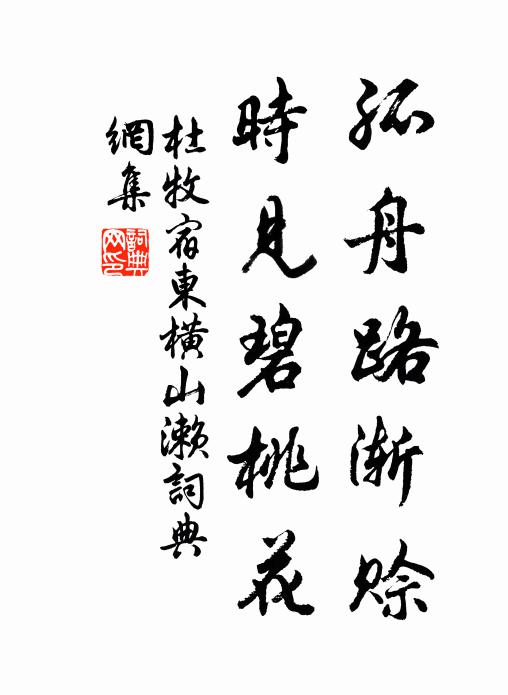 孤舟路渐赊
時見碧桃花
杜牧宿東横山瀨詞典
網集
詞典網印